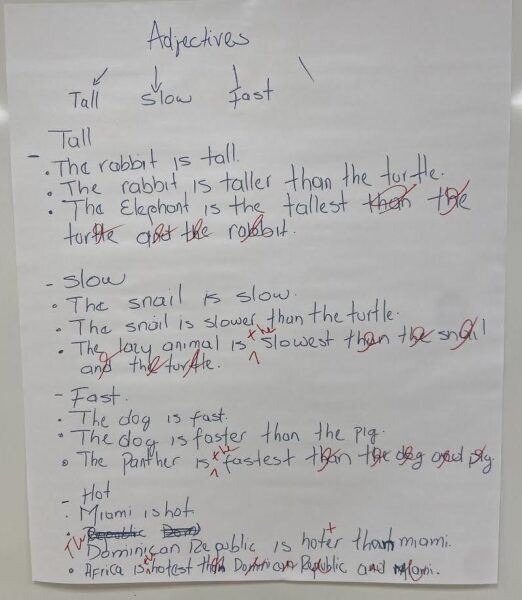 Adjectives
Tall slow fast
- Tall
• The rabbit is tall.
• The rabbit is taller than the turtle.
• The Elephant is the tallest than the
turtle and the rabbit.
- Slow
• The snail is slow.
• The snail is slower than the turtle.
• The lazy animal is the slowest than the snail
and the turtle.
- Fast.
• The dog is fast.
• The dog is faster than the pig.
• The Panther is the fastest than the dog and pig
- Hot
• Miami is hot.
• Republic Dom
The Dominican Republic is hotter than miami.
• Africa is the hotest than Dominican Republic and Miami.